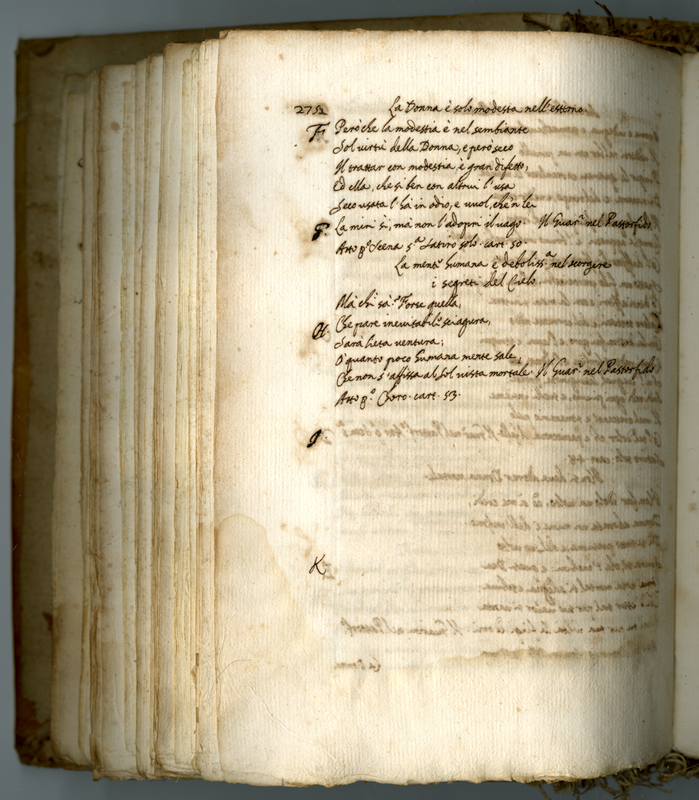 2751 La Donna è solo modesta nell'esterno
F. Però che la modestia è nel sembiante
Sol virtù della Donna, e però seco
Il trattar con modestia è gran difetto,
Ed ella, che si ben con altrui l'usa
Seco usata l'ha in odio, e vuol, che 'n lei
G. La miri sì, mà non l'adopri il vago. Il Guar.i nel Pastorfido
Atto p.o Scena 5.a Satiro solo. cart. 50.
La ment.e humana è deboliss.a nel scorgere
i segreti del Cielo
Mà chi sa.? Forse quella,
H. Che pare inevitabil.e sciagura,
Sarà lieta ventura;
O quanto poco humana mente sale,
Che non s'affissa al Sol vista mortale. Il Guar.i nel Pastorfido
Atto p.o Choro. cart. 53.
I.
K